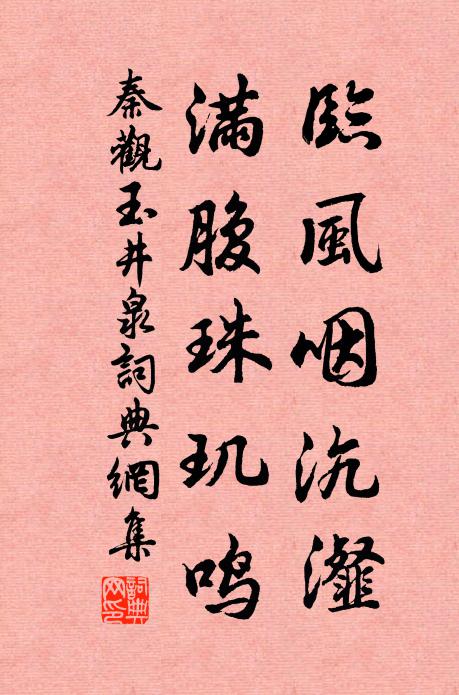 臨風咽沆瀣
滿腹珠玑鸣
秦觀玉井泉詞典網集